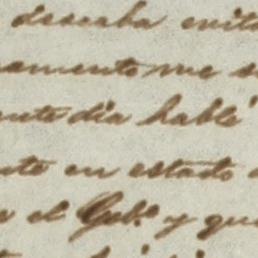 deseaba evita
amento me s
ente dia hablé
nte en estado
el Gob.º y que